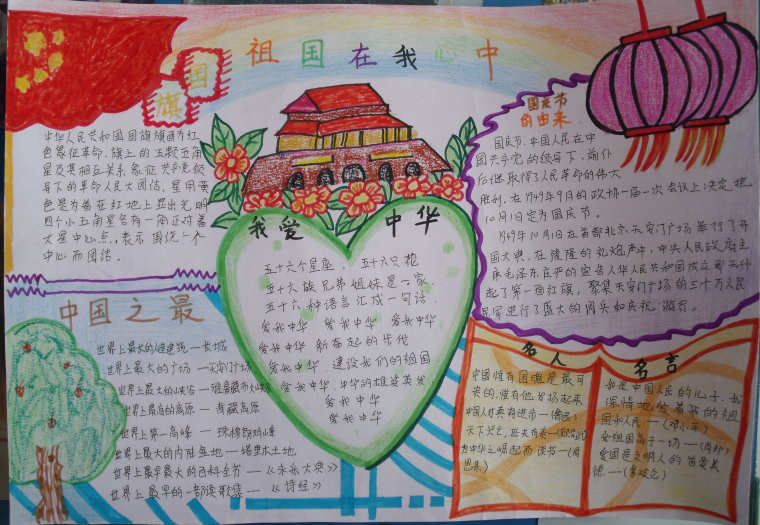 祖国在我心中
国旗
中华人民共和国国旗旗面为红
色象征革命,旗上的五颗五角
星及其相互关系象征共产党领
导下的革命人民大团结,星用黄
色是为着在红地上显出光明
四个小五角星各有一角正对着
大星中心点,表示围绕一个
中心而团结。
中国之最
世界上最大的 — 长城
世界上最大的广场 — 天安门广场
世界上最大的峡谷 — 雅鲁藏布大峡谷
世界上最高的高原 — 青藏高原
世界上第一高峰 — 珠穆朗玛峰
世界上最大的内陆盆地 — 塔里木土地
世界上最早最大的百科全书 — 《永乐大典》
世界上最早的一部诗歌集 — 《诗经》
我爱 中华
五十六个星座,五十六只花
五十六族兄弟姐妹是一家
五十六种语言汇成一句话
爱我中华 爱我中华 爱我中华
爱我中华 新奋起的步伐
爱我中华 建设我们的祖国
爱我中华 中华的雄姿英发
爱我中华
爱我中华
国庆节
的由来
国庆节,中国人民在中
国共产党的领导下,前仆
后继取得了人民革命的伟大
胜利,在1949年9月的政协一届一次会议上决定,把
10月1日定为国庆节。
1949年10月1日在首都北京天安门广场举行了开
国大典,在隆隆的礼炮声中,中央人民政府主
席毛泽东庄严的宣告人华人民共和国成立
起了第一面红旗,聚集天安门广场的三十万人民
进行了盛大的阅兵和庆祝游行。
名人
中国惟有国魂是最可
贵的,惟有他发扬起来
中国人才有真进步—(鲁迅)
天下兴亡,匹夫有责—
为中华之崛起而读书—(周
恩来)
名言
我是中国人民的儿子,我
深情地爱着我的祖
国和人民—(邓小平)
爱祖国高于一切—(肖邦)
爱国是文明人的首要美
德—(拿破仑)